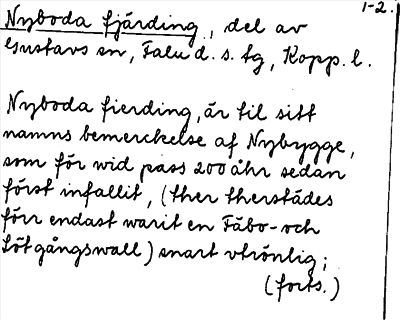 1-2.
Nyboda fjärding, del av
Gustavs sn, Falu d. s. tg, Kopp. l.
Nyboda fierding, är til sitt
namns bemerckelse af Nybygge,
som för wid pass 200 åhr sedan
först infallit, (ther therstädes
förr endast warit en Fäbo- och
Löt gångswall) snart vtrönlig;
(forts.)